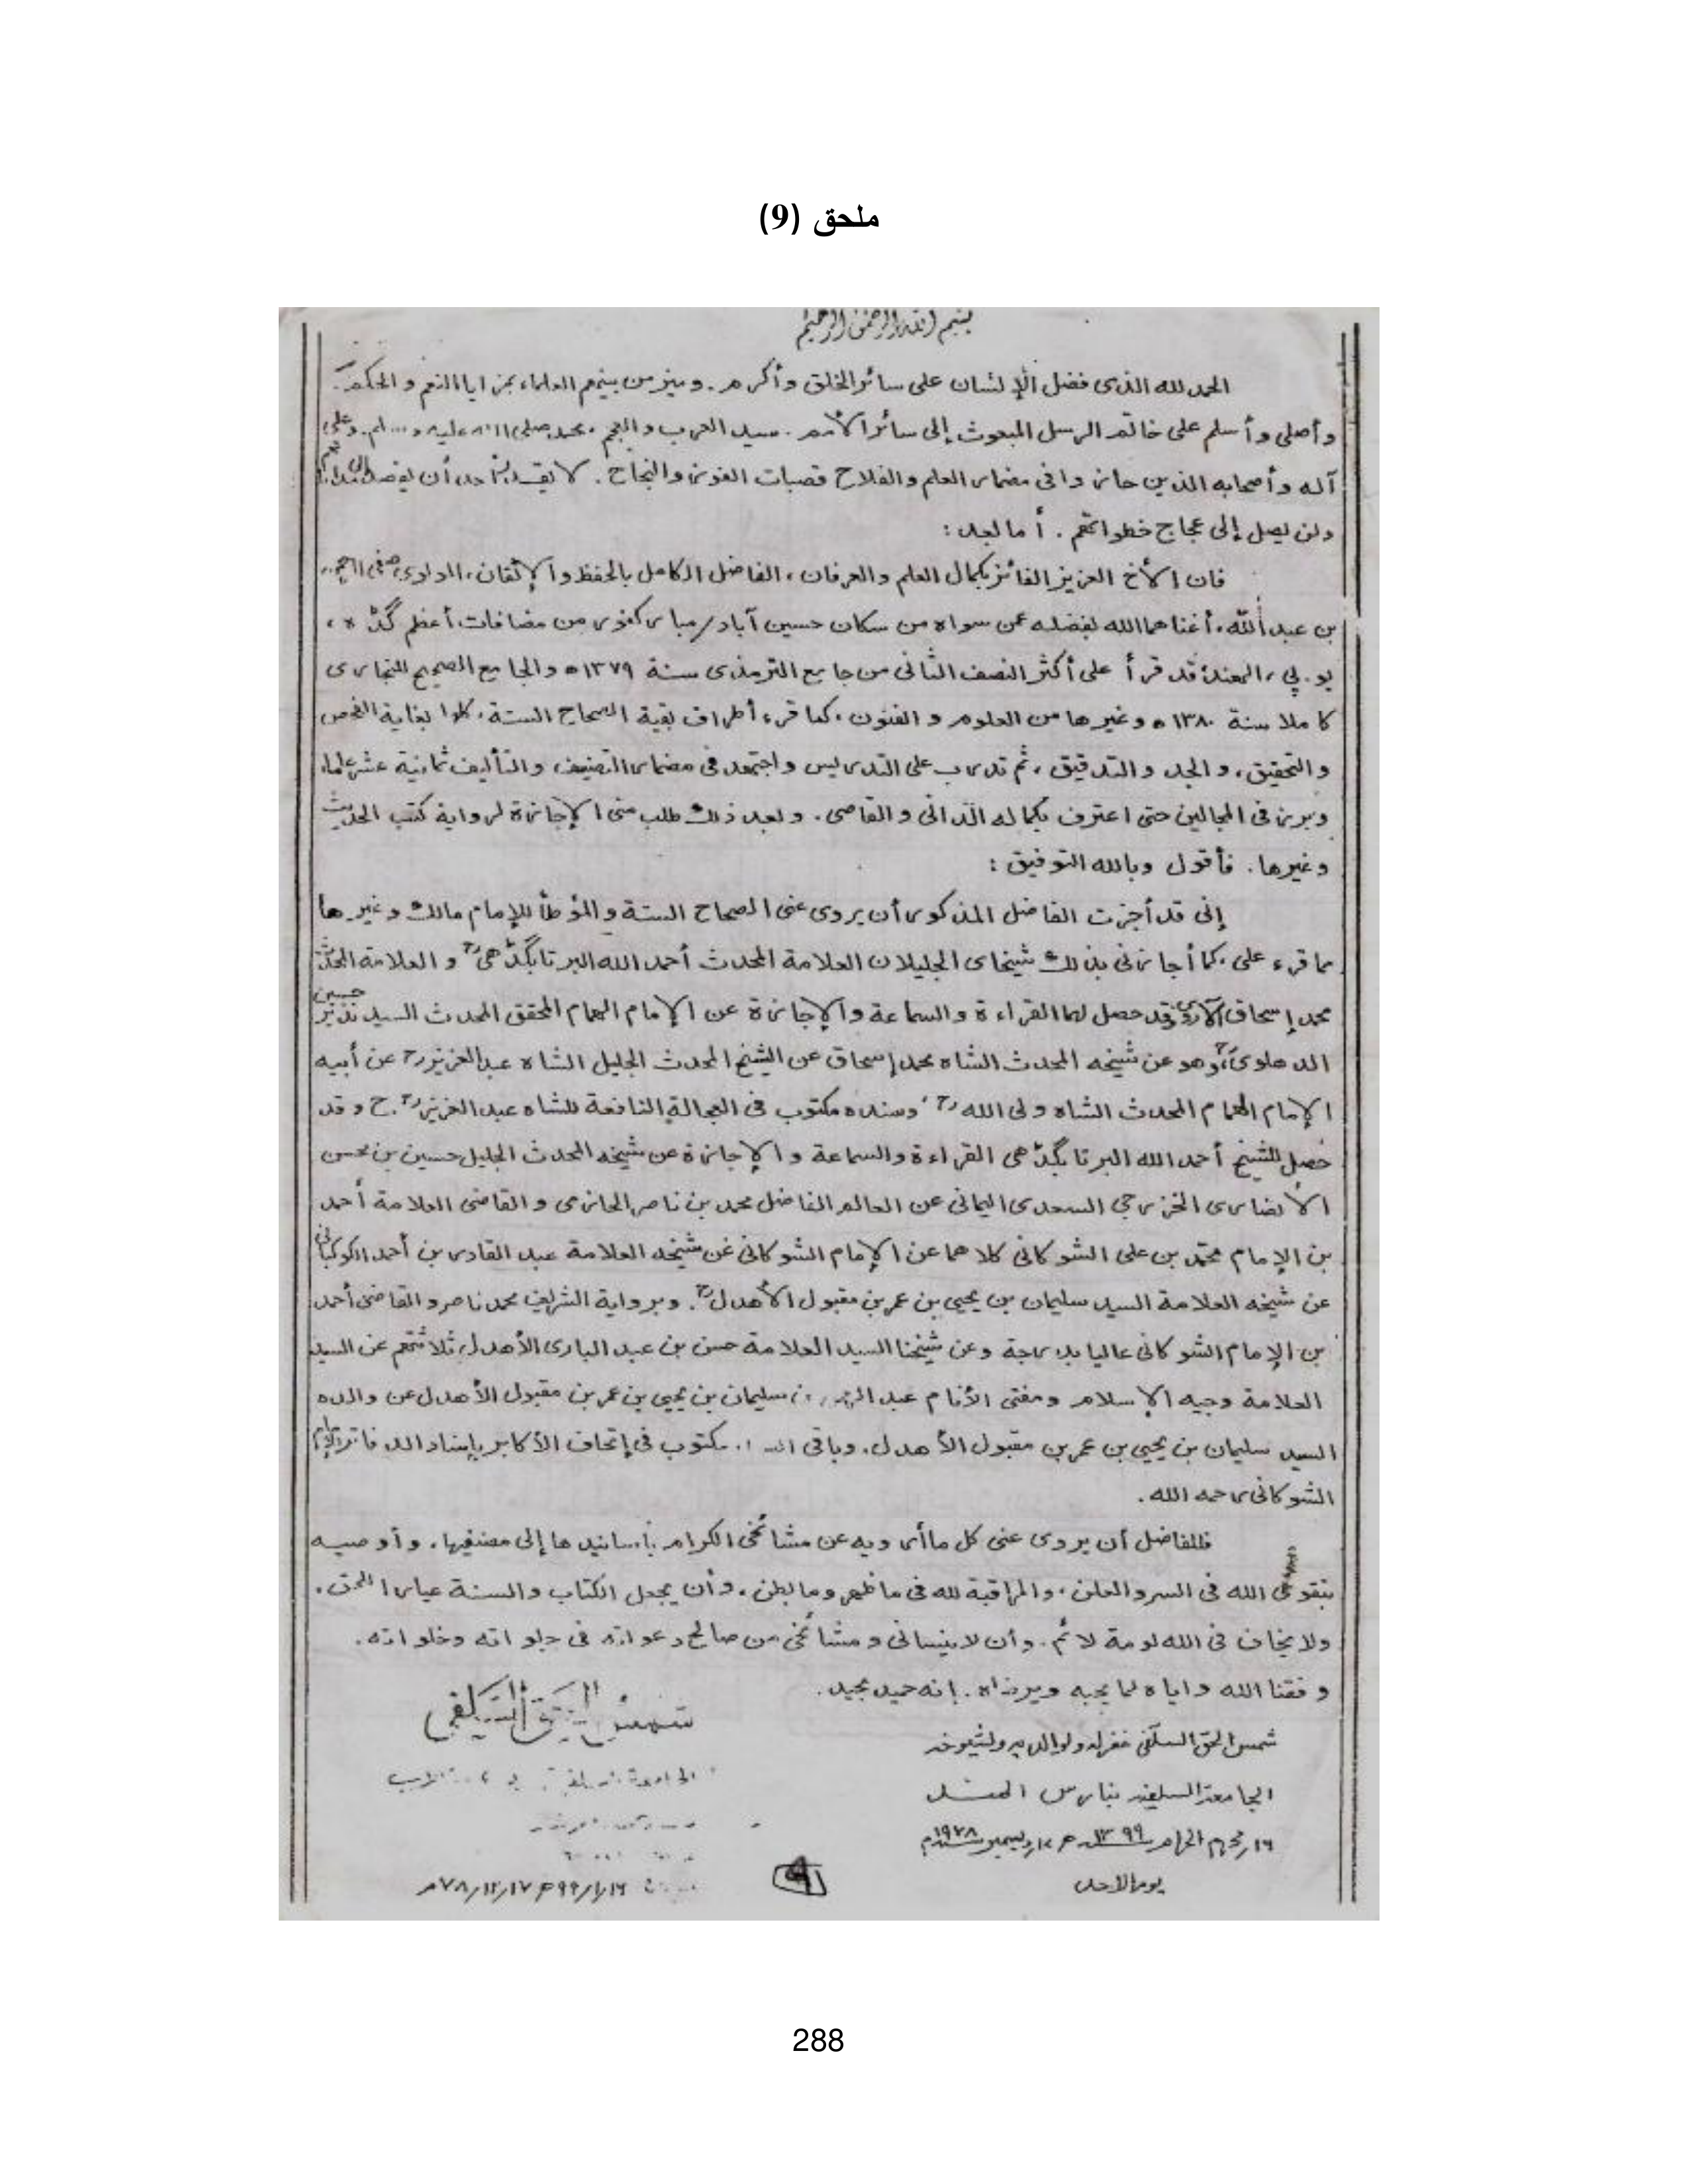 ملحق (9)
بسم الله الرحمن الرحيم
الحمد لله الذى فضل الإنسان على سائر الخلق وأكرم. وميز من بينهم العلماء بمزايا النعم والحكم.
وأصلى وأسلم على خاتم الرسل المبعوث إلى سائر الأمم. سيد العرب والعجم، محمد صلى الله عليه وسلم. وعلى
آله وأصحابه الذين حازوا فى مضمار العلم والفلاح قصبات الفوز والنجاح. لا يقدر أحد أن
ولن يصل إلى عجاج خطواتهم. أما بعد:
فان الأخ العزيز الفائز بكمال العلم والعرفان، الفاضل الكامل بالحفظ والإتقان، المولوى صفى الرحمن
بن عبد الله، أغناهما الله بفضله عمن سواه من سكان حسين آباد/مباركفور من مضافات أعظم گڈه،
يو. پي، الهند، قد قرأ على أكثر النصف الثانى من جامع الترمذى سنة ١٣٧٩ه والجامع الصحيح للبخارى
كاملا سنة ١٣٨٠ه وغيرها من العلوم والفنون، كما قرء أطراف بقية الصحاح الستة، كلها بغاية الفحص
والتحقيق، والجد والتدقيق، ثم تدرب على التدريس واجتهد فى مضمار التصنيف والتأليف ثمانية عشر عاما،
وبرز فى المجالين حتى اعترف بكماله الدانى والقاصى. وبعد ذلك طلب منى الإجازة لرواية كتب الحديث
وغيرها. فأقول وبالله التوفيق:
إنى قد أجزت الفاضل المذكور أن يروى عنى الصحاح الستة والمؤطأ للإمام مالك وغيرها
مما قرء على، كما أجازنى بذلك شيخاى الجليلان العلامة المحدث أحمد الله البرتابگڈهى رح والعلامة المحدث
محمد إسحاق الآروى قد حصل لهما القراءة والسماعة والإجازة عن الإمام الهمام المحقق المحدث السيد نذير حسين
الدهلوى رح، وهو عن شيخه المحدث الشاه محمد إسحاق عن الشيخ المحدث الجليل الشاه عبد العزيز رح عن أبيه
الإمام الهمام المحدث الشاه ولى الله رح، وسنده مكتوب فى العجالة النافعة للشاه عبد العزيز رح. ح وقد
حصل للشيخ أحمد الله البرتابگڈهى القراءة والسماعة والإجازة عن شيخه المحدث الجليل حسين بن محسن
الأنصارى الخزرجي السعدى اليمانى عن العالم الفاضل محمد بن ناصر الحازمى والقاضى العلامة أحمد
بن الإمام محمد بن على الشوكانى كلاهما عن الإمام الشوكانى عن شيخه العلامة عبد القادر بن أحمد الكوكبانى
عن شيخه العلامة السيد سليمان بن يحيى بن عمر بن مقبول الأهدل رح. وبرواية الشريف محمد ناصر والقاضى أحمد
بن الإمام الشوكانى عاليا بدرجة وعن شيخنا السيد العلامة حسن بن عبد البارى الأهدل، ثلاثتهم عن السيد
العلامة وجيه الإسلام ومفتى الأنام عبد الرحمن بن سليمان بن يحيى بن عمر بن مقبول الأهدل عن والده
السيد سليمان بن يحيى بن عمر بن مقبول الأهدل. وباقى السند مكتوب فى إتحاف الأكابر بإسناد الدفاتر للإمام
الشوكانى رحمه الله.
فللفاضل أن يروى عنى كل ما أرويه عن مشائخى الكرام بأسانيدها إلى مصنفيها، وأوصيه
بتقوى الله فى السر والعلن، والمراقبة لله فى ما ظهر وما بطن، وأن يجعل الكتاب والسنة عيار الحق،
ولا يخاف فى الله لومة لائم. وأن لا ينسانى ومشائخى من صالح دعواته فى جلواته وخلواته.
وفقنا الله واياه لما يحبه ويرضاه. إنه حميد مجيد.
شمس الحق السلفى غفر له ولوالديه ولشيوخه
الجامعة السلفية بنارس الهند
١٦/محرم الحرام ١٣٩٩ه م ١٧/ديسمبر ١٩٧٨م
يوم الاحد
شمس الحق السلفي
الجامعة السلفية
١٦/١/٩٩ه ١٧/١٢/٧٨م
9
288